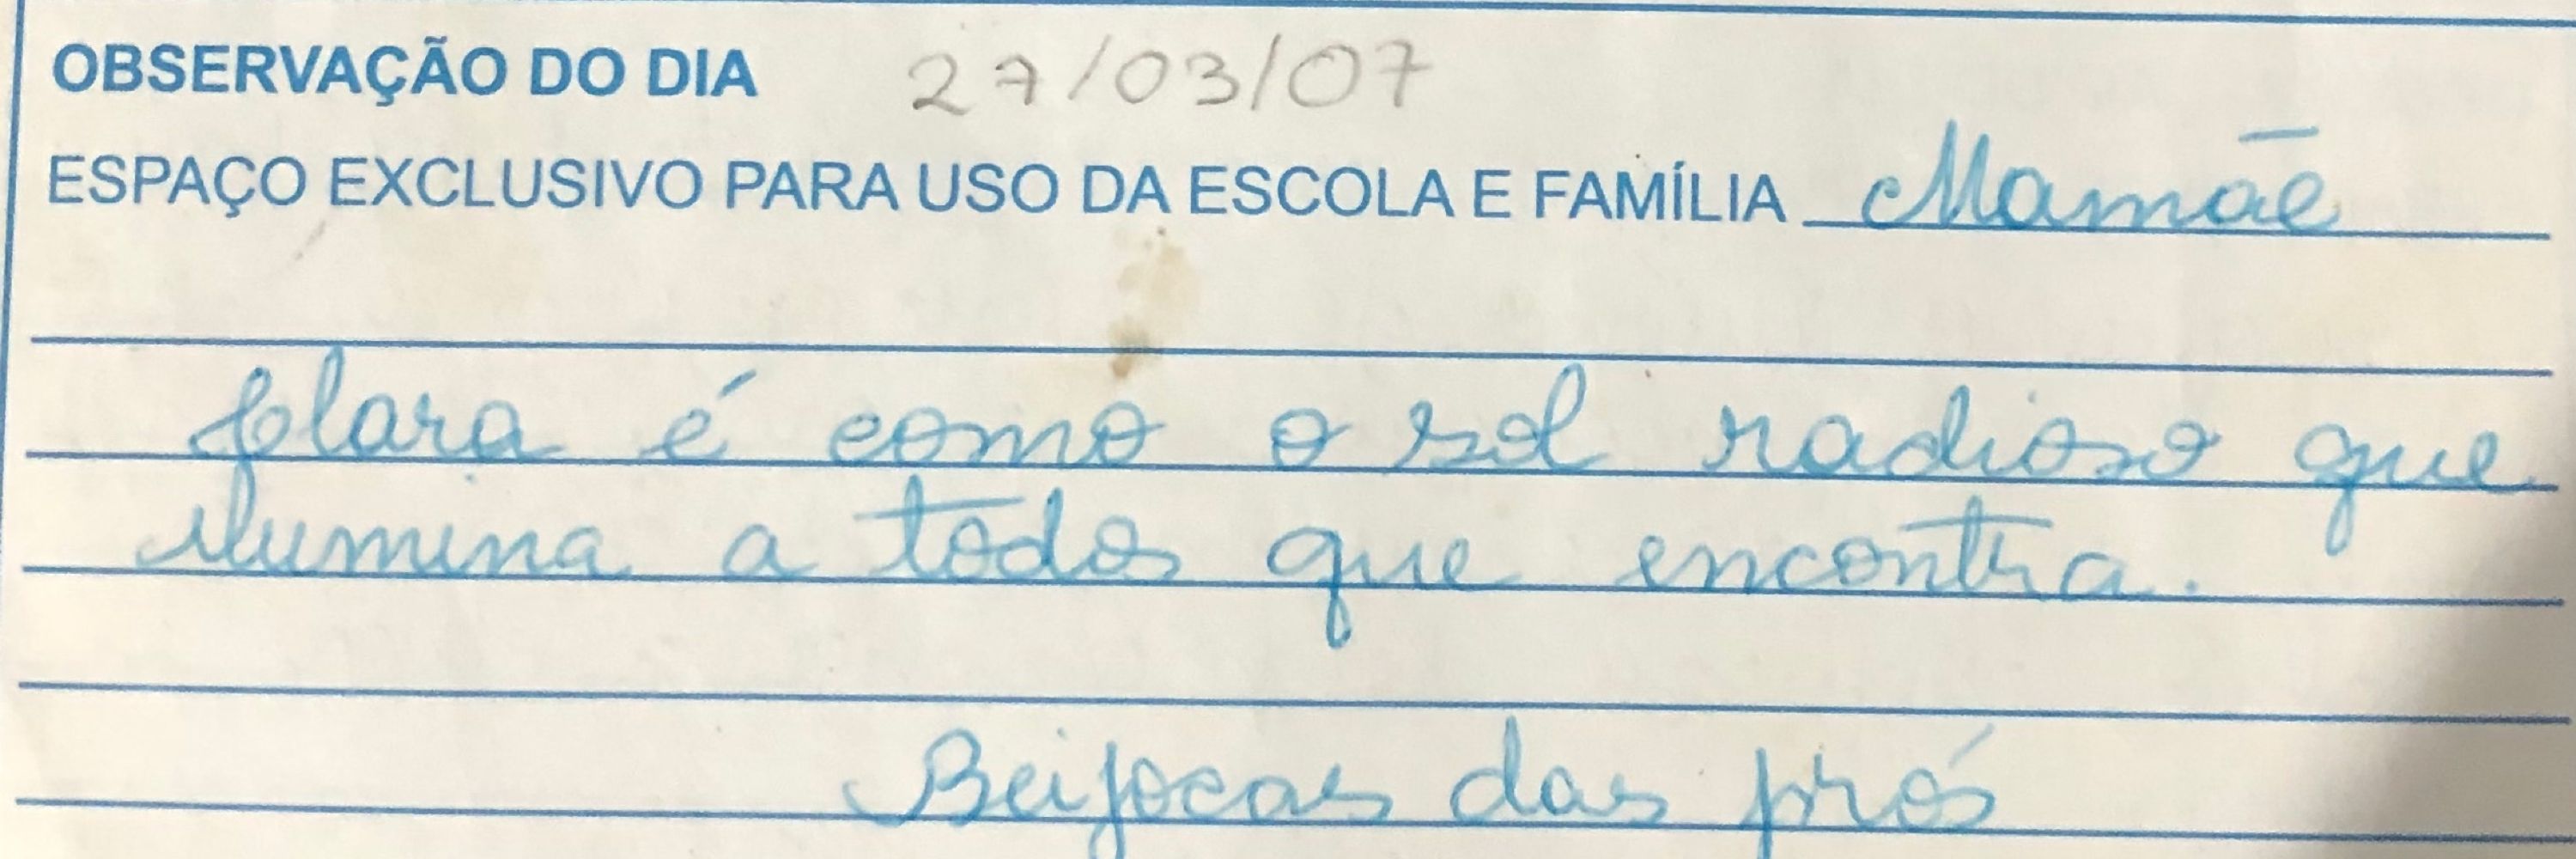 OBSERVAÇÃO DO DIA 27/03/07
ESPAÇO EXCLUSIVO PARA USO DA ESCOLA E FAMÍLIA Mamãe
Clara é como o sol radioso que
ilumina a todos que encontra.
Beijocas das prós